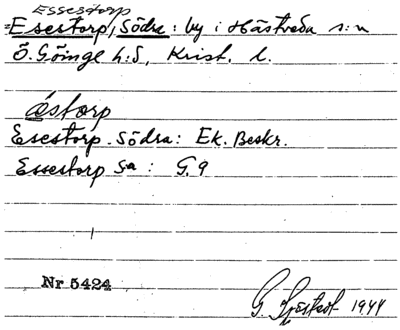 Essestorp
Esestorp, Södra: by i Hästveda s:n
Ö. Göinge h:d, Krist. l.
åstorp
Esestorp. Södra: Ek. Beskr.
Essestorp S:a : G. 9
Nr 5424
G. Sjöstedt 1944